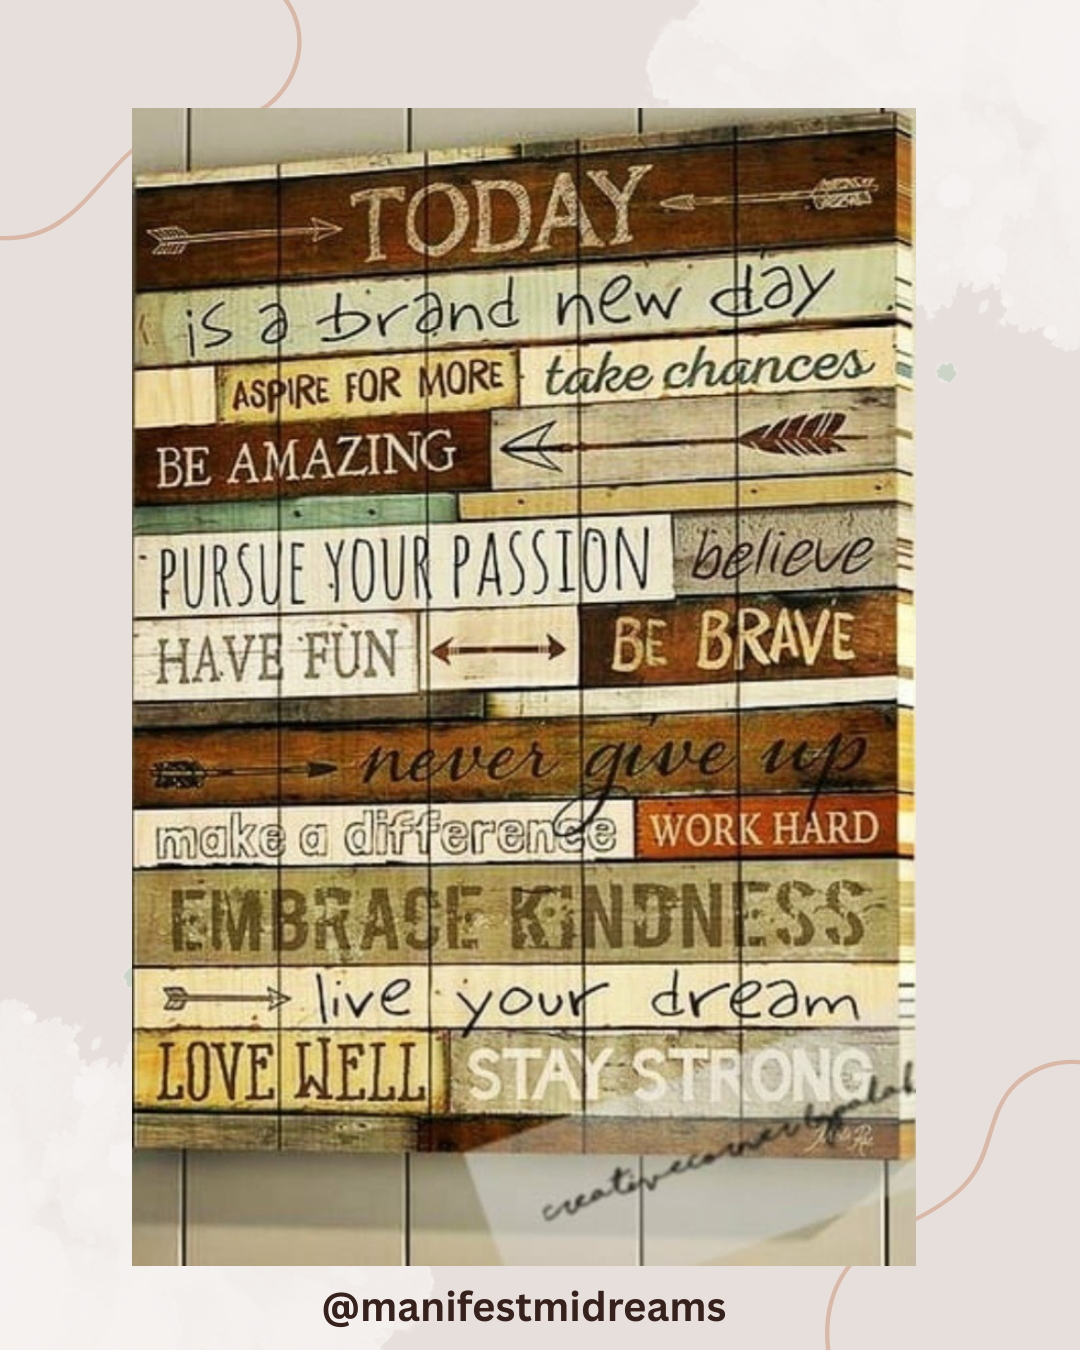 TODAY
is a brand new day
ASPIRE FOR MORE take chances
BE AMAZING
PURSUE YOUR PASSION believe
HAVE FUN BE BRAVE
never give up
make a difference WORK HARD
EMBRACE KINDNESS
live your dream
LOVE WELL STAY STRONG
@manifestmidreams